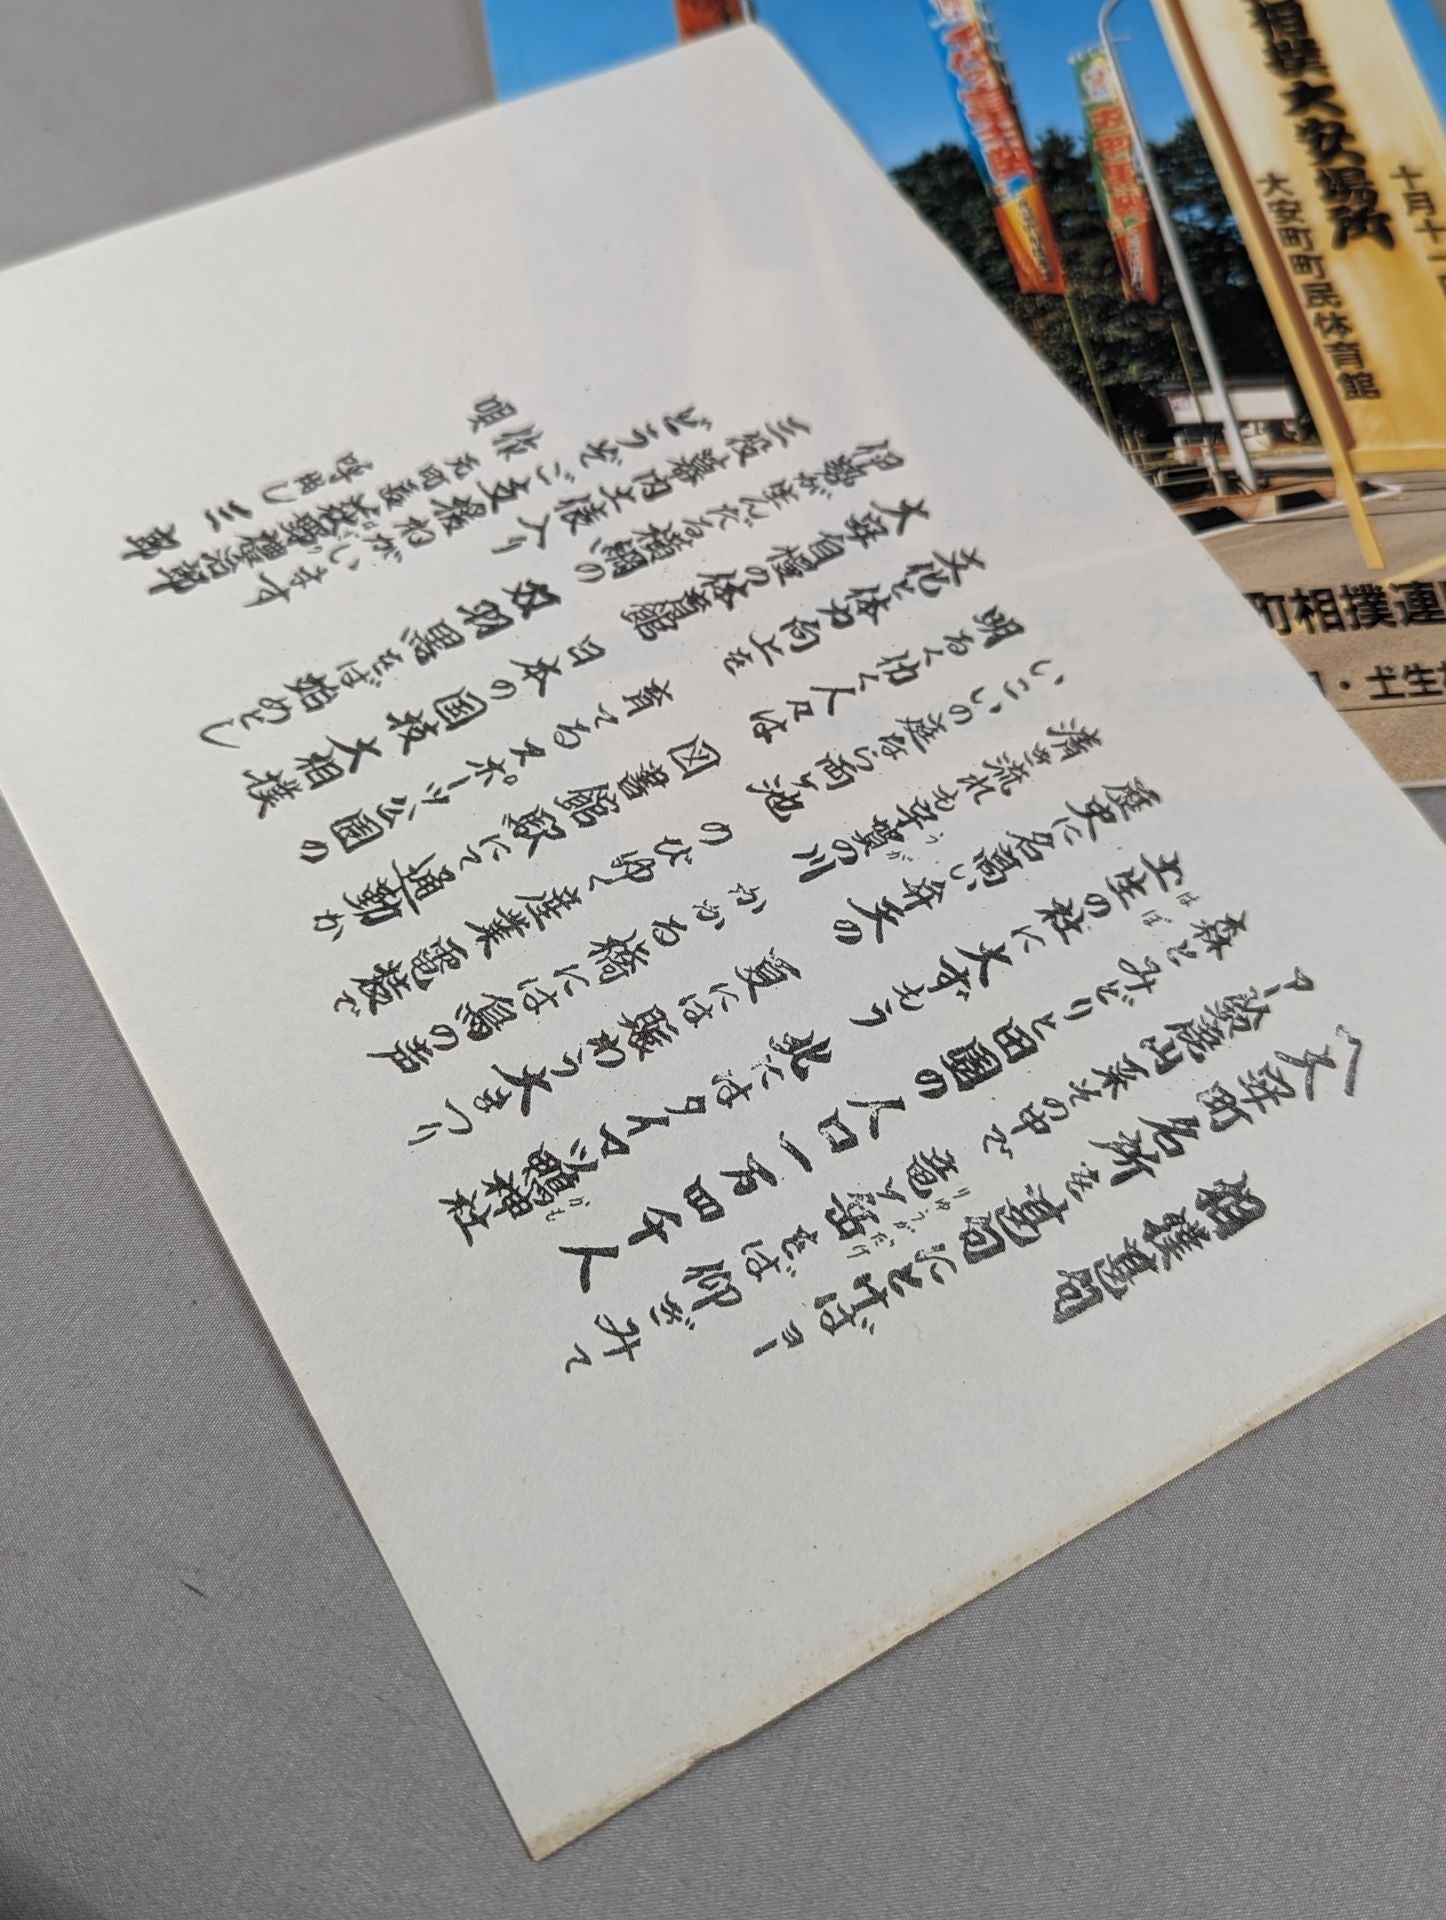 相撲甚句
〽大安町名所を甚句にとけばヨー
アー鈴鹿山系その中で 竜ヶ岳をば仰ぎみて
森とみどりと田園の 人口一万四千人
土生の社に大ずもう 北にはタイマツ鴨神社
歴史に名高い弁天の 夏には賑わう大まつり
清き流れも宇賀の川 かかる橋には鳥の声
いこいの庭なら両ヶ池 のびゆく産業電稜で
明るく巾く人々は 図書館駅にて通勤か
文化と体力向上を 育てるスポーツ公園の
大安自慢の体育館 日本の国技大相撲
伊勢が生んだる横綱の 双羽黒をば始めとし
三役幕内土俵入り
どうぞご支援ねがいます
作 元町議
唄 呼出し 三郎
十月十一
相撲大安場所
大安町町民体育館
町相撲連
・土生